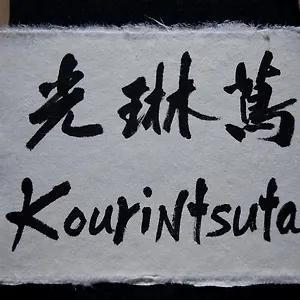 光琳蔦
KouriNtsuta